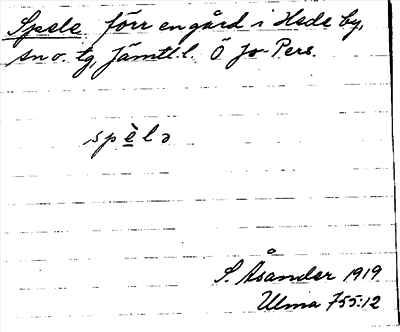 Spele förr en gård i Hede by,
sn o. tg, Jämtl.l. Ö Jo-Pers.
spèlə
S. Åsander 1919
Ulma 755:12